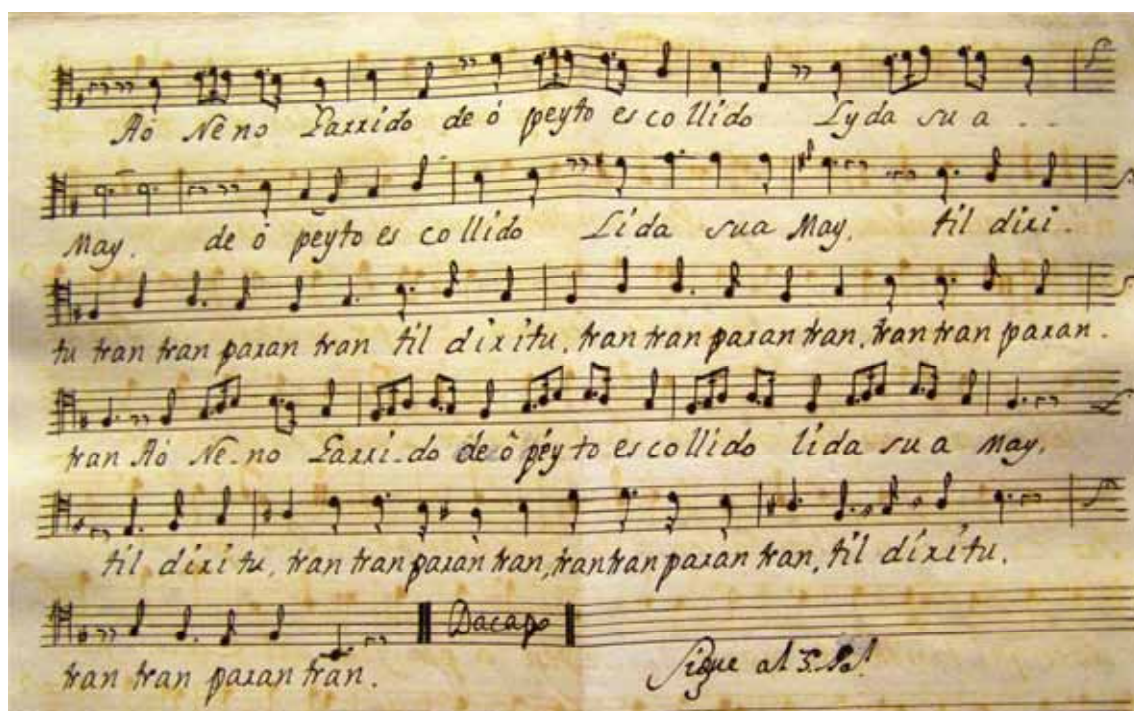 Aó Neno Garrido de ó peyto es co llido Lyda su a - -
May. de ó peyto es co llido Lida sua May. til diri -
tu tran tran paran tran til diritu, tran tran paran tran, tran tran paran -
tran Aó Ne - no Garri - do de ô péy to es collido lida su a May,
til diri tu, tran tran paran tran, tran tran paran tran, til díritu.
Dacapo
tran tran paran tran.
Sigue al 3.